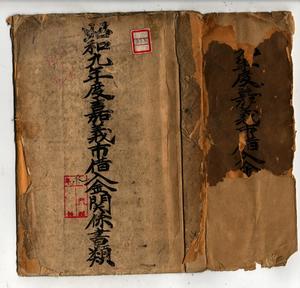 昭和九年度嘉義市借入金関係書類
年度嘉義市借入金